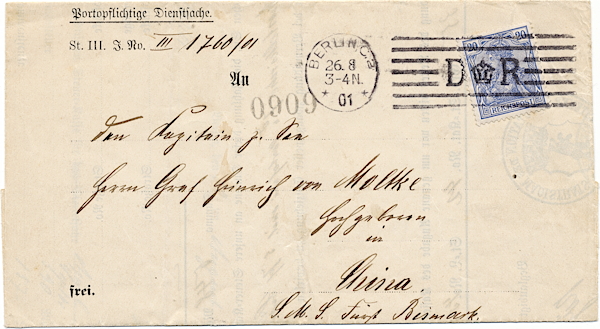 Portopflichtige Dienstsache.
St. III. J. No. III 1760/01
BERLIN C 2
26.8
3-4N.
01
D R
20 20
REICHSPOST
An
0909
den Kapitain z. See
Herrn Graf Heinrich von Moltke
Hochgeboren
in
China.
frei.
S. M. S. Fürst Bismark.